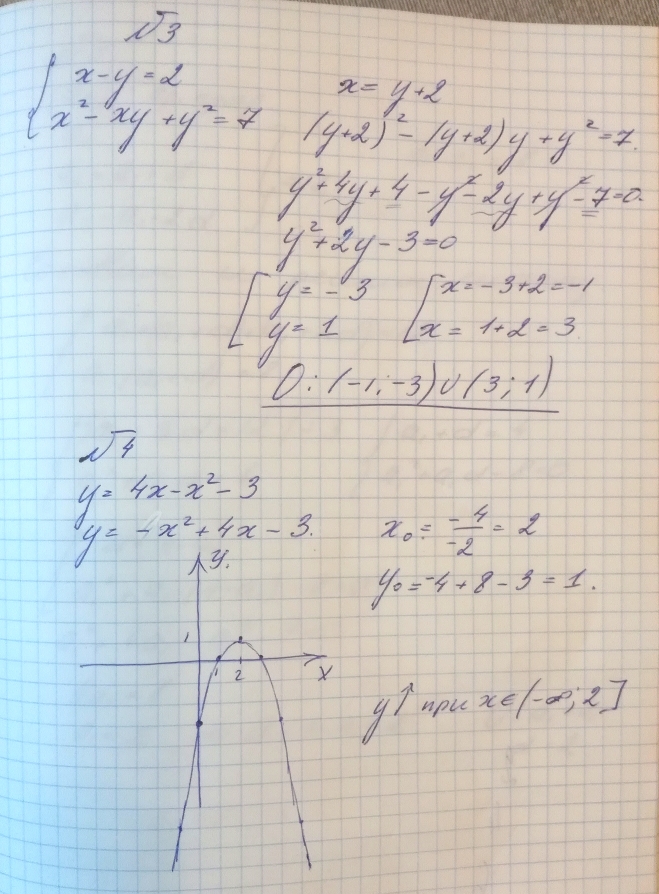 №3
{ x-y=2
x²-xy+y²=7
x= y+2
(y+2)²-(y+2)y+y²=7.
y²+4y+4-y²-2y+y²-7=0.
y²+2y-3=0
[ y=-3
y=1
[ x=-3+2=-1
x=1+2=3
О: (-1;-3)∪(3;1)
№4
y=4x-x²-3
y=-x²+4x-3.
x₀=-4/-2=2
y₀=-4+8-3=1.
y
1
1 2 x
y↑ при x∈(-∞;2]